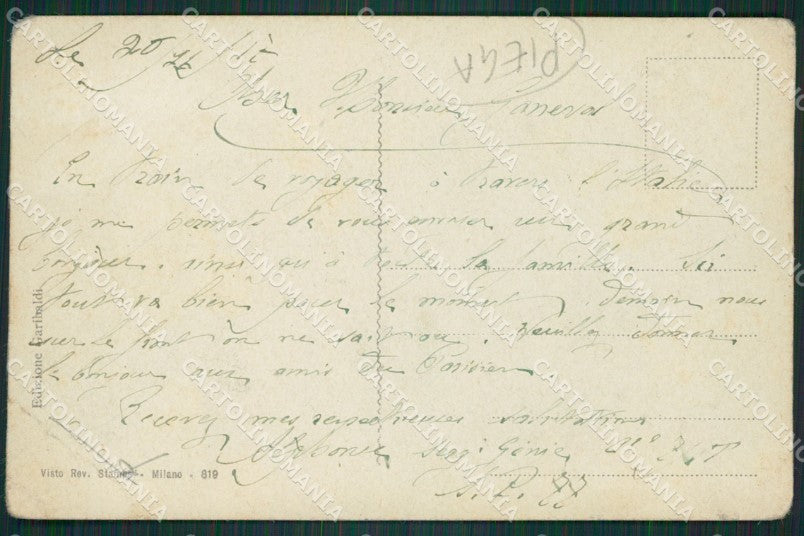 Le 20
PIEGA
Cher Monsieur
En train de voyager à travers l'Italie
je me permets de vous envoyer un grand
bonjour. ainsi qu'à toute la famille. Ici
tout va bien pour le moment, demain nous
sur le front on ne sait où. Veuillez donner
le bonjour aux amis du Parisien
Recevez mes respectueuses salutations
Génie
S.P.
Edizione Garibaldi
Visto Rev. Stampa - Milano - 619
CARTOLINOMANIA